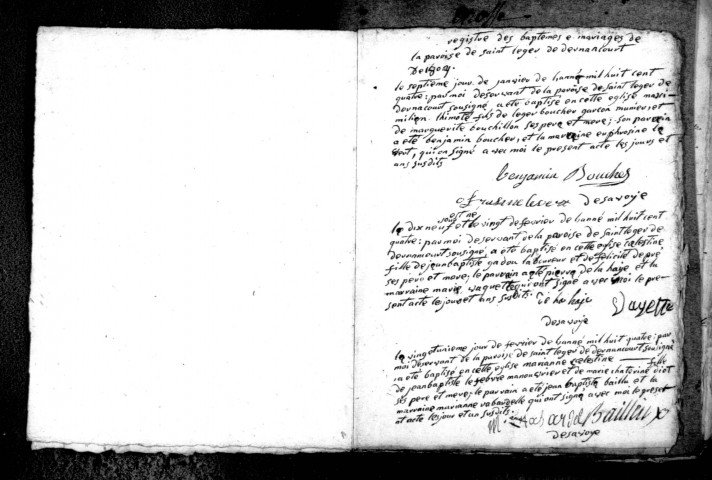 registre des baptemes e mariages de
la paroise de saint leger de dernancourt
le septieme jour de janvier de lanné mil huit cent
quatre: par moi deservant de la paroise de saint leger de
dernacourt sousigné a eté baptisé en cette eglise maxi-
milien thimoté fils de leger boucher garcon munier et
de marguerite bouchillon ses pere et mere; son parain
a eté benjamin boucher, et la maraine euphrosine le
vert, qui on signé avec moi le present acte les jours et
ans susdits
benjamin Boucher
desavoje
est né
le dix neuf et le vingt de fevrier de lanné mil huit cent
quatre: par moi deservant de la paroise de saint leger de
dernancourt sousigné, a eté baptisé en cette eglise celestine
fille de jean baptiste gadou laboureur et de felicité depré
ses pere et mere; le parain a eté pierre de la haye et la
marraine marie vaquette qui ont signé avec moi le pre-
sent acte le jour et ans susdits.
de la haje
Vaquette
desavoje
le vingt unieme jour de fevrier de lanné mil huit quatre: par
moi deservant de la paroise de saint leger de dernancourt sousigné
a eté baptisé en cette eglise marianne celestine fille
de jean baptiste lefebvre manouvrier et de marie chaterine diot
ses pere et mere; le parain a eté jean baptiste baillu et la
marraine marianne qui ont signé avec moi le present
acte les jour et an susdits.
Bailleux
desavoye